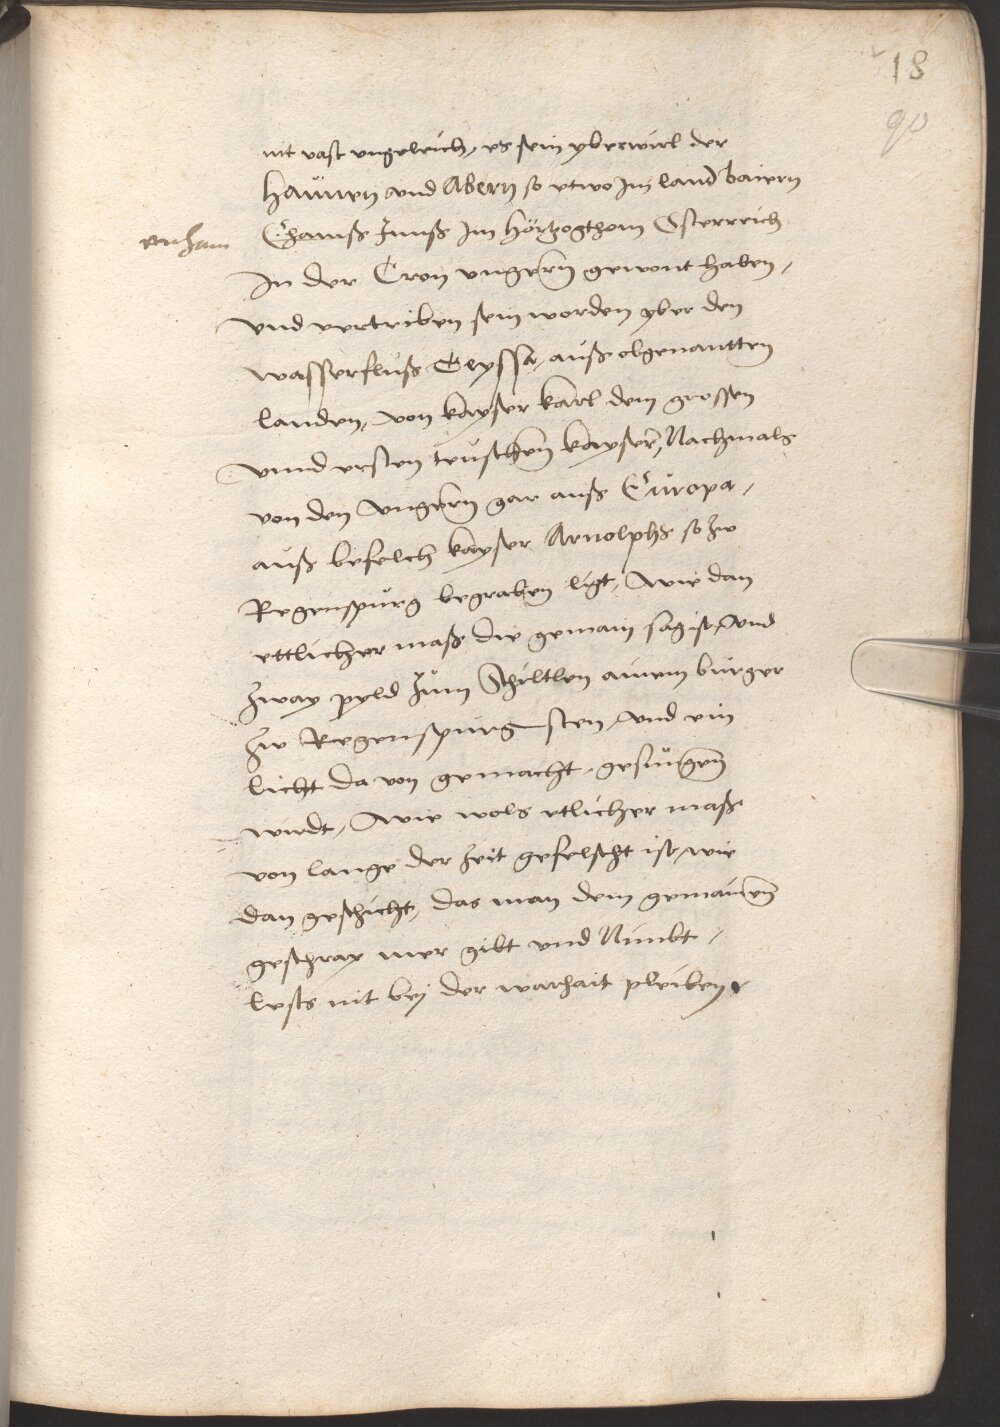 18
90
nit vast vngeleich, es sein yberwirl der
Haunen vnd Abern so etwo Im land bairn
Im Hörtzogthom Osterreich
In der Cron vngern gewont haben,
vnd vertriben sein worden yber den
wasserfluß Teyssa, auß obgenantten
landen, von kayser karl dem grossen
vnnd ersten teuschen kayser, Nachmals
von den vngern gar auß Europa,
auß befelch kayser Arnolphs so zw
Regenspurg begraben ligt, wie dan
ettlicher maß die gemain sag ist, vnd
zway pyld zum Schiltlen ainem burger
zw Regenspurg sten, vnd ein
licht da von gemacht, gesungen
wirdt, wie wols etlicher maß
von lange der zeit gefelscht ist, wie
dan geschicht, das man dem gemainen
geschray mer gibt vnd Nimbt,
lests nit bej der warhait pleiben,